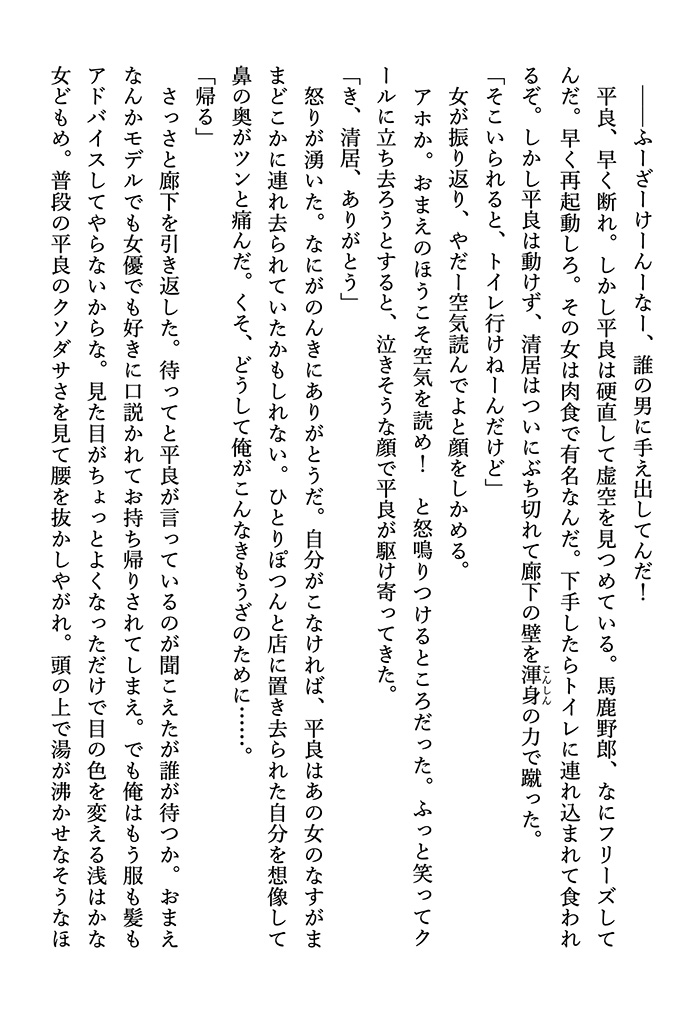 ――ふーざーけーんーなー、誰の男に手え出してんだ！
平良、早く断れ。しかし平良は硬直して虚空を見つめている。馬鹿野郎、なにフリーズして
んだ。早く再起動しろ。その女は肉食で有名なんだ。下手したらトイレに連れ込まれて食われ
るぞ。しかし平良は動けず、清居はついにぶち切れて廊下の壁を渾身の力で蹴った。
こんしん
「そこいられると、トイレ行けねーんだけど」
女が振り返り、やだー空気読んでよと顔をしかめる。
アホか。おまえのほうこそ空気を読め！　と怒鳴りつけるところだった。ふっと笑ってク
ールに立ち去ろうとすると、泣きそうな顔で平良が駆け寄ってきた。
「き、清居、ありがとう」
怒りが湧いた。なにがのんきにありがとうだ。自分がこなければ、平良はあの女のなすがま
まどこかに連れ去られていたかもしれない。ひとりぽつんと店に置き去られた自分を想像して
鼻の奥がツンと痛んだ。くそ、どうして俺がこんなきもうざのために……。
「帰る」
さっさと廊下を引き返した。待ってと平良が言っているのが聞こえたが誰が待つか。おまえ
なんかモデルでも女優でも好きに口説かれてお持ち帰りされてしまえ。でも俺はもう服も髪も
アドバイスしてやらないからな。見た目がちょっとよくなっただけで目の色を変える浅はかな
女どもめ。普段の平良のクソダサさを見て腰を抜かしやがれ。頭の上で湯が沸かせなそうなほ